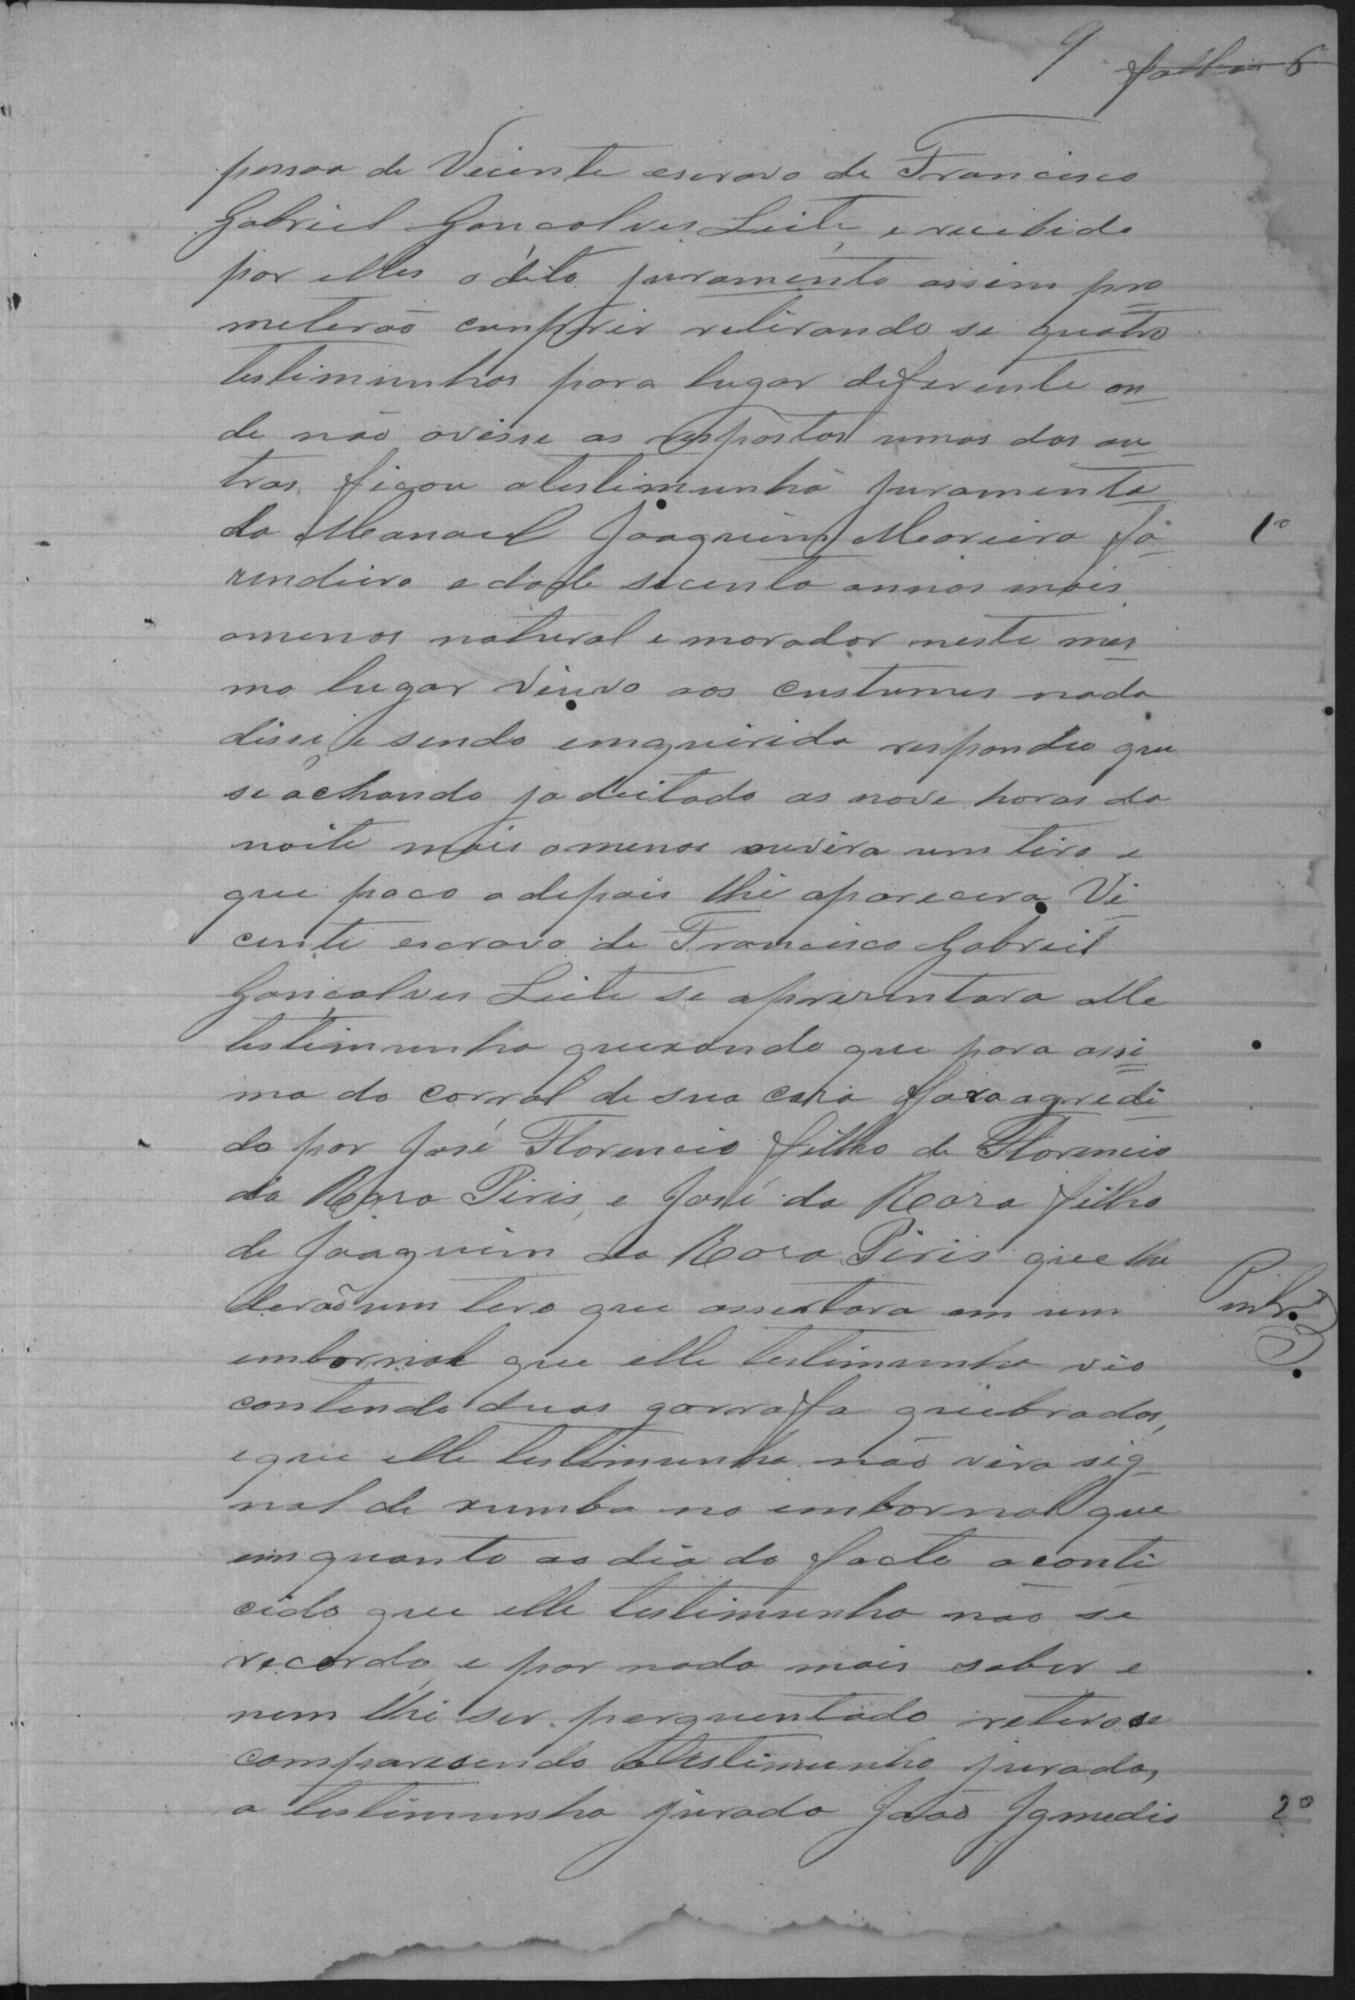 9 folhas 5
pessoa de Vicente escravo de Francisco
Gabriel Goncalves Leite, e recebido
por elles o dito juramento assim pro
meterão cumprir retirando se quatro
testimunhas para lugar deferente on
de não ovisse as respostas umas das ou
tras, ficou a testimunha juramenta
da Manoel Joaquim Moreira fa 1ª
zendeiro edade secenta annos mais
omenos natural e morador neste mes
mo lugar viuvo aos custumes nada
disse e sendo emquirida respondeo que
se achando ja deitado as nove horas da
noite mais omenos ouvira um tiro e
que poco adepois lhe aparecera Vi
cente escravo de Francisco Gabriel
Gonçalves Leite se aprezentara elle
testimunha quexando que para assi
ma do corral de sua casa foraagredi
do por José Florencio filho de Florencio
da Roza Piris, e José da Roza filho
de Joaquim da Roza Piris que lhe
derão um tiro que assertara em um
embornal que elle testimunha vio
contendo duas garrafa quebradas,
eque elle testimunha não vira sig
nal de xumbo no embornal que
emquanto ao dia do facto aconti
cido que elle testimunha não se
recorda, e por nada mais saber e
nem lhe ser perguentado retirose
comparecendo atestimunha jurada,
a testimunha jurada João Ignacio 2ª